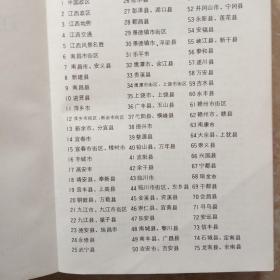 1 中国政区
2 江西政区
3 江西地势
4 江西交通
5 江西风景名胜
6 南昌市市区
7 南昌市、安义县
8 新建县
9 南昌县
10 进贤县
11 萍乡市
12 萍乡市市区、新余市市区
13 新余市、分宜县
14 宜春市
15 宜春市市区、樟树市
16 丰城市
17 高安市
18 靖安县、奉新县
19 宜丰县、上高县
20 铜鼓县、万载县
21 九江市、九江市市区
22 九江县、星子县
23 德安县、瑞昌市
24 永修县
25 武宁县
27 彭泽县、湖口县
28 都昌县
29 景德镇市市区
30 景德镇市、浮梁县
31 乐平市
32 鹰潭市、余江县
33 贵溪县
34 鹰潭市市区、上饶市市区
35 上饶市、上饶县
36 广丰县、玉山县
37 弋阳县、横峰县
38 德兴市
39 婺源县
40 铅山县、万年县
41 余干县
42 波阳县
43 临川市
44 临川市市区、东乡县
45 金溪县、资溪县
46 崇仁县、宜黄县
47 乐安县
48 南城县、黎川县
49 南丰县、广昌县
50 吉安市、吉安县
52 井冈山市、宁冈县
53 永新县、莲花县
54 吉水县
55 峡江县、新干县
56 永丰县
57 泰和县
58 万安县
59 遂川县
60 赣州市
61 赣州市市区
62 赣州市、赣县
63 南康市
64 大余县、上犹县
65 崇义县
66 信丰县
67 兴国县
68 宁都县
69 于都县
70 瑞金市
71 石城县
72 会昌县
73 寻乌县
74 安远县
75 龙南县、全南县